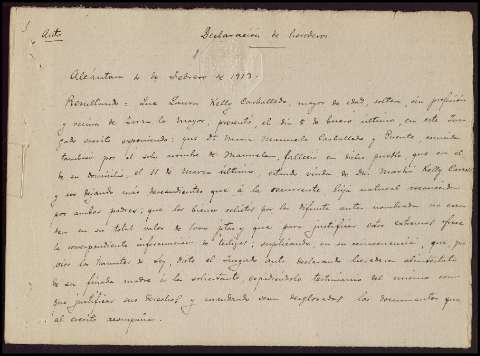 Auto
Declaración de herederos
Alcántara 4 de Febrero de 1913.
Resultando: Que Laura Kelly Carballeda, mayor de edad, soltera, sin profesión
y vecina de Zarza la Mayor, presentó, el día 5 de Enero último, en este Juz-
gado escrito exponiendo: que Dª María Manuela Carballeda y Puente, conocida
también por el solo nombre de Manuela, falleció en dicho pueblo, que era el
de su domicilio, el 11 de Marzo último, estando viuda de don Martín Kelly
y no dejando más descendientes que á la ocurrente hija natural reconocida
por ambos padres; que los bienes relictos por la difunta antes nombrada no exce-
den en su total valor de ptas y que para justificar estos extremos ofrece
la correspondiente información de testigos, suplicando, en su consecuencia, que, pre-
vios los trámites de ley, dicte el Juzgado auto declarando heredera abintestato
de su finada madre á la solicitante, expidiéndole testimonio del mismo con
que justificar sus derechos y mandando sean desglosados los documentos que
al escrito acompaña.